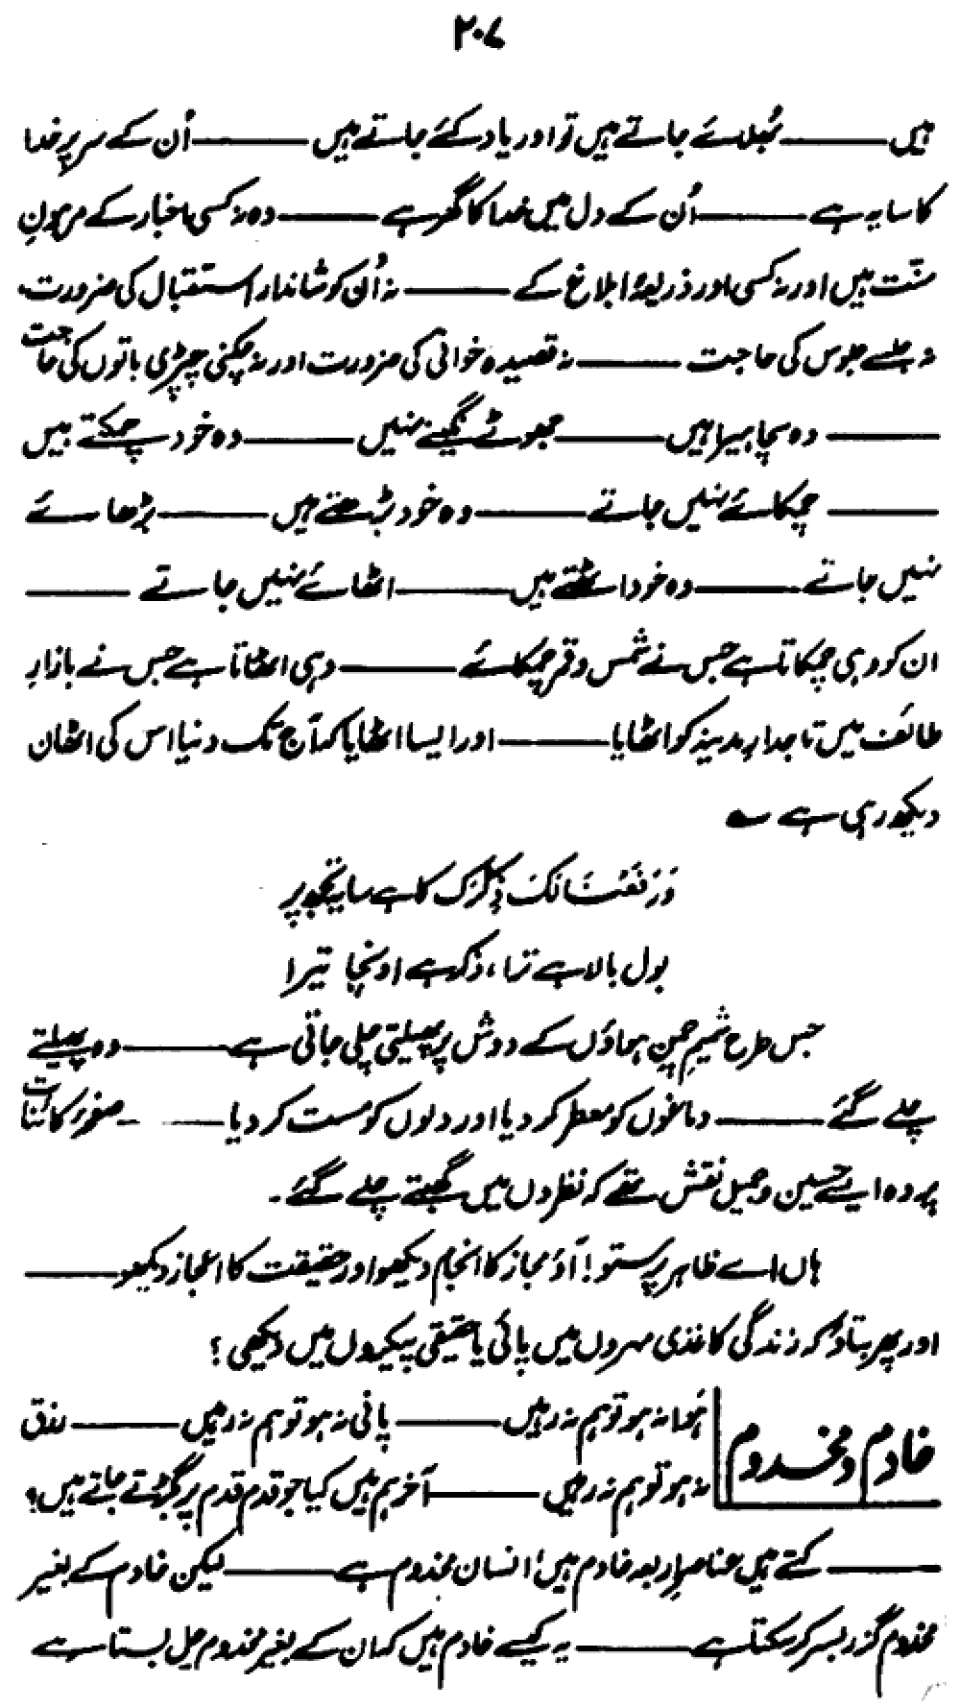 ۲۰۷
ہیں ——— بُھلائے جاتے ہیں تو اور یاد کئے جاتے ہیں ——— اُن کے سر پر خدا
کا سایہ ہے ——— اُن کے دل میں خدا کا گھر ہے ——— وہ نہ کسی اخبار کے مرہونِ
منّت ہیں اور نہ کسی اور ذریعۂ ابلاغ کے ——— نہ اُن کو شاندار استقبال کی ضرورت،
نہ جلسے جلوس کی حاجت ——— نہ قصیدہ خوانی کی ضرورت اور نہ چکنی چپڑی باتوں کی حاجت
——— وہ سچا ہیرا ہیں ——— جھوٹے نگینے نہیں ——— وہ خود چمکتے ہیں
——— چمکائے نہیں جاتے ——— وہ خود بڑھتے ہیں ——— بڑھائے
نہیں جاتے ——— وہ خود اٹھتے ہیں ——— اٹھائے نہیں جاتے ———
ان کو وہی چمکاتا ہے جس نے شمس و قمر چمکائے ——— وہی اٹھاتا ہے جس نے بازارِ
طائف میں تاجدارِ مدینہ کو اٹھایا ——— اور ایسا اٹھایا کہ آج تک دنیا اس کی اٹھان
دیکھ رہی ہے ؎
وَرَفَعْنَا لَکَ ذِکْرَک کا ہے سایہ تجھ پر
بول بالا ہے ترا، ذکر ہے اونچا تیرا
جس طرح شمیمِ چمن ہواؤں کے دوش پر پھیلتی چلی جاتی ہے ——— وہ پھیلتے
چلے گئے ——— دماغوں کو معطر کر دیا اور دلوں کو مست کر دیا ——— صفحۂ کائنات
پر وہ ایسے حسین و جمیل نقش تھے کہ نظروں میں کھبتے چلے گئے۔
ہاں اے ظاہر پرستو! آؤ مجاز کا انجام دیکھو اور حقیقت کا اعجاز دیکھو ———
اور پھر بتاؤ کہ زندگی کاغذی مہروں میں پائی یا حقیقی پیکروں میں دیکھی؟
خادم و مخدوم
ہَوا نہ ہو تو ہم نہ رہیں ——— پانی نہ ہو تو ہم نہ رہیں ——— رزق
نہ ہو تو ہم نہ رہیں ——— آخر ہم ہیں کیا جو قدم قدم پر بگڑتے جاتے ہیں؟
——— کہتے ہیں عناصرِ اربعہ خادم ہیں، انسان مخدوم ہے ——— لیکن خادم کے بغیر
مخدوم گزر بسر کر سکتا ہے ——— یہ کیسے خادم ہیں کہ ان کے بغیر مخدوم چل بستا ہے